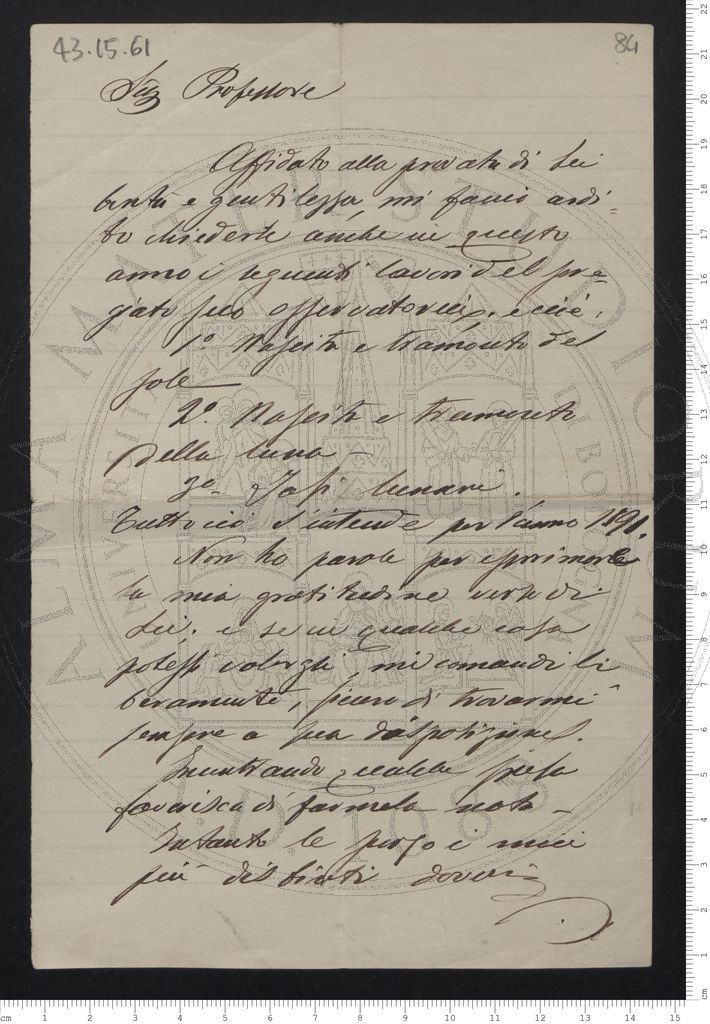 43.15.61
84
Sig Professore
Affidato alla provata di Lei
bontà e gentilezza, mi faccio ardi=
to chiederle anche in questo
anno i seguenti lavori del pre=
giato suo osservatorio, e cioè:
1º. Nascita e tramonto del
sole
2º. Nascita e tramonto
della luna —
3º Fasi lunari.
Tutto ciò s'intende per l'anno 1891.
Non ho parole per esprimerle
la mia gratitudine verso di
Lei: e se in qualche cosa
potessi valergli, mi comandi li
beramente, sicuro di trovarmi
sempre a sua disposizione.
Incontrando qualche spesa
favorisca di farmela nota —
Intanto le porgo i miei
più distinti doveri